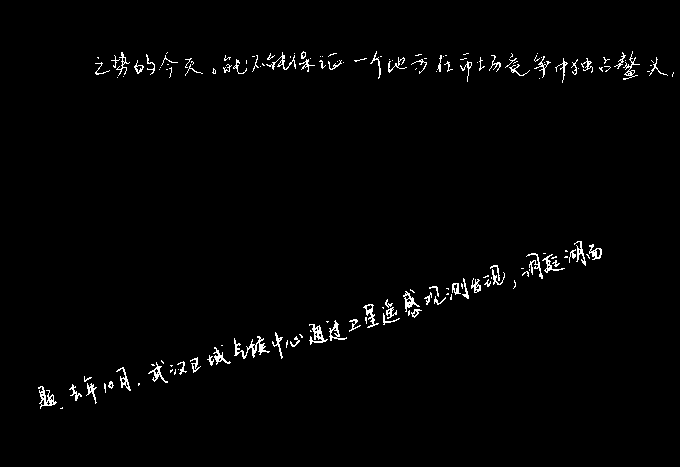 之势的今天。能不能保证一个地方在市场竞争中独占鳌头,
题。去年10月,武汉区域气候中心通过卫星遥感观测发现,洞庭湖面